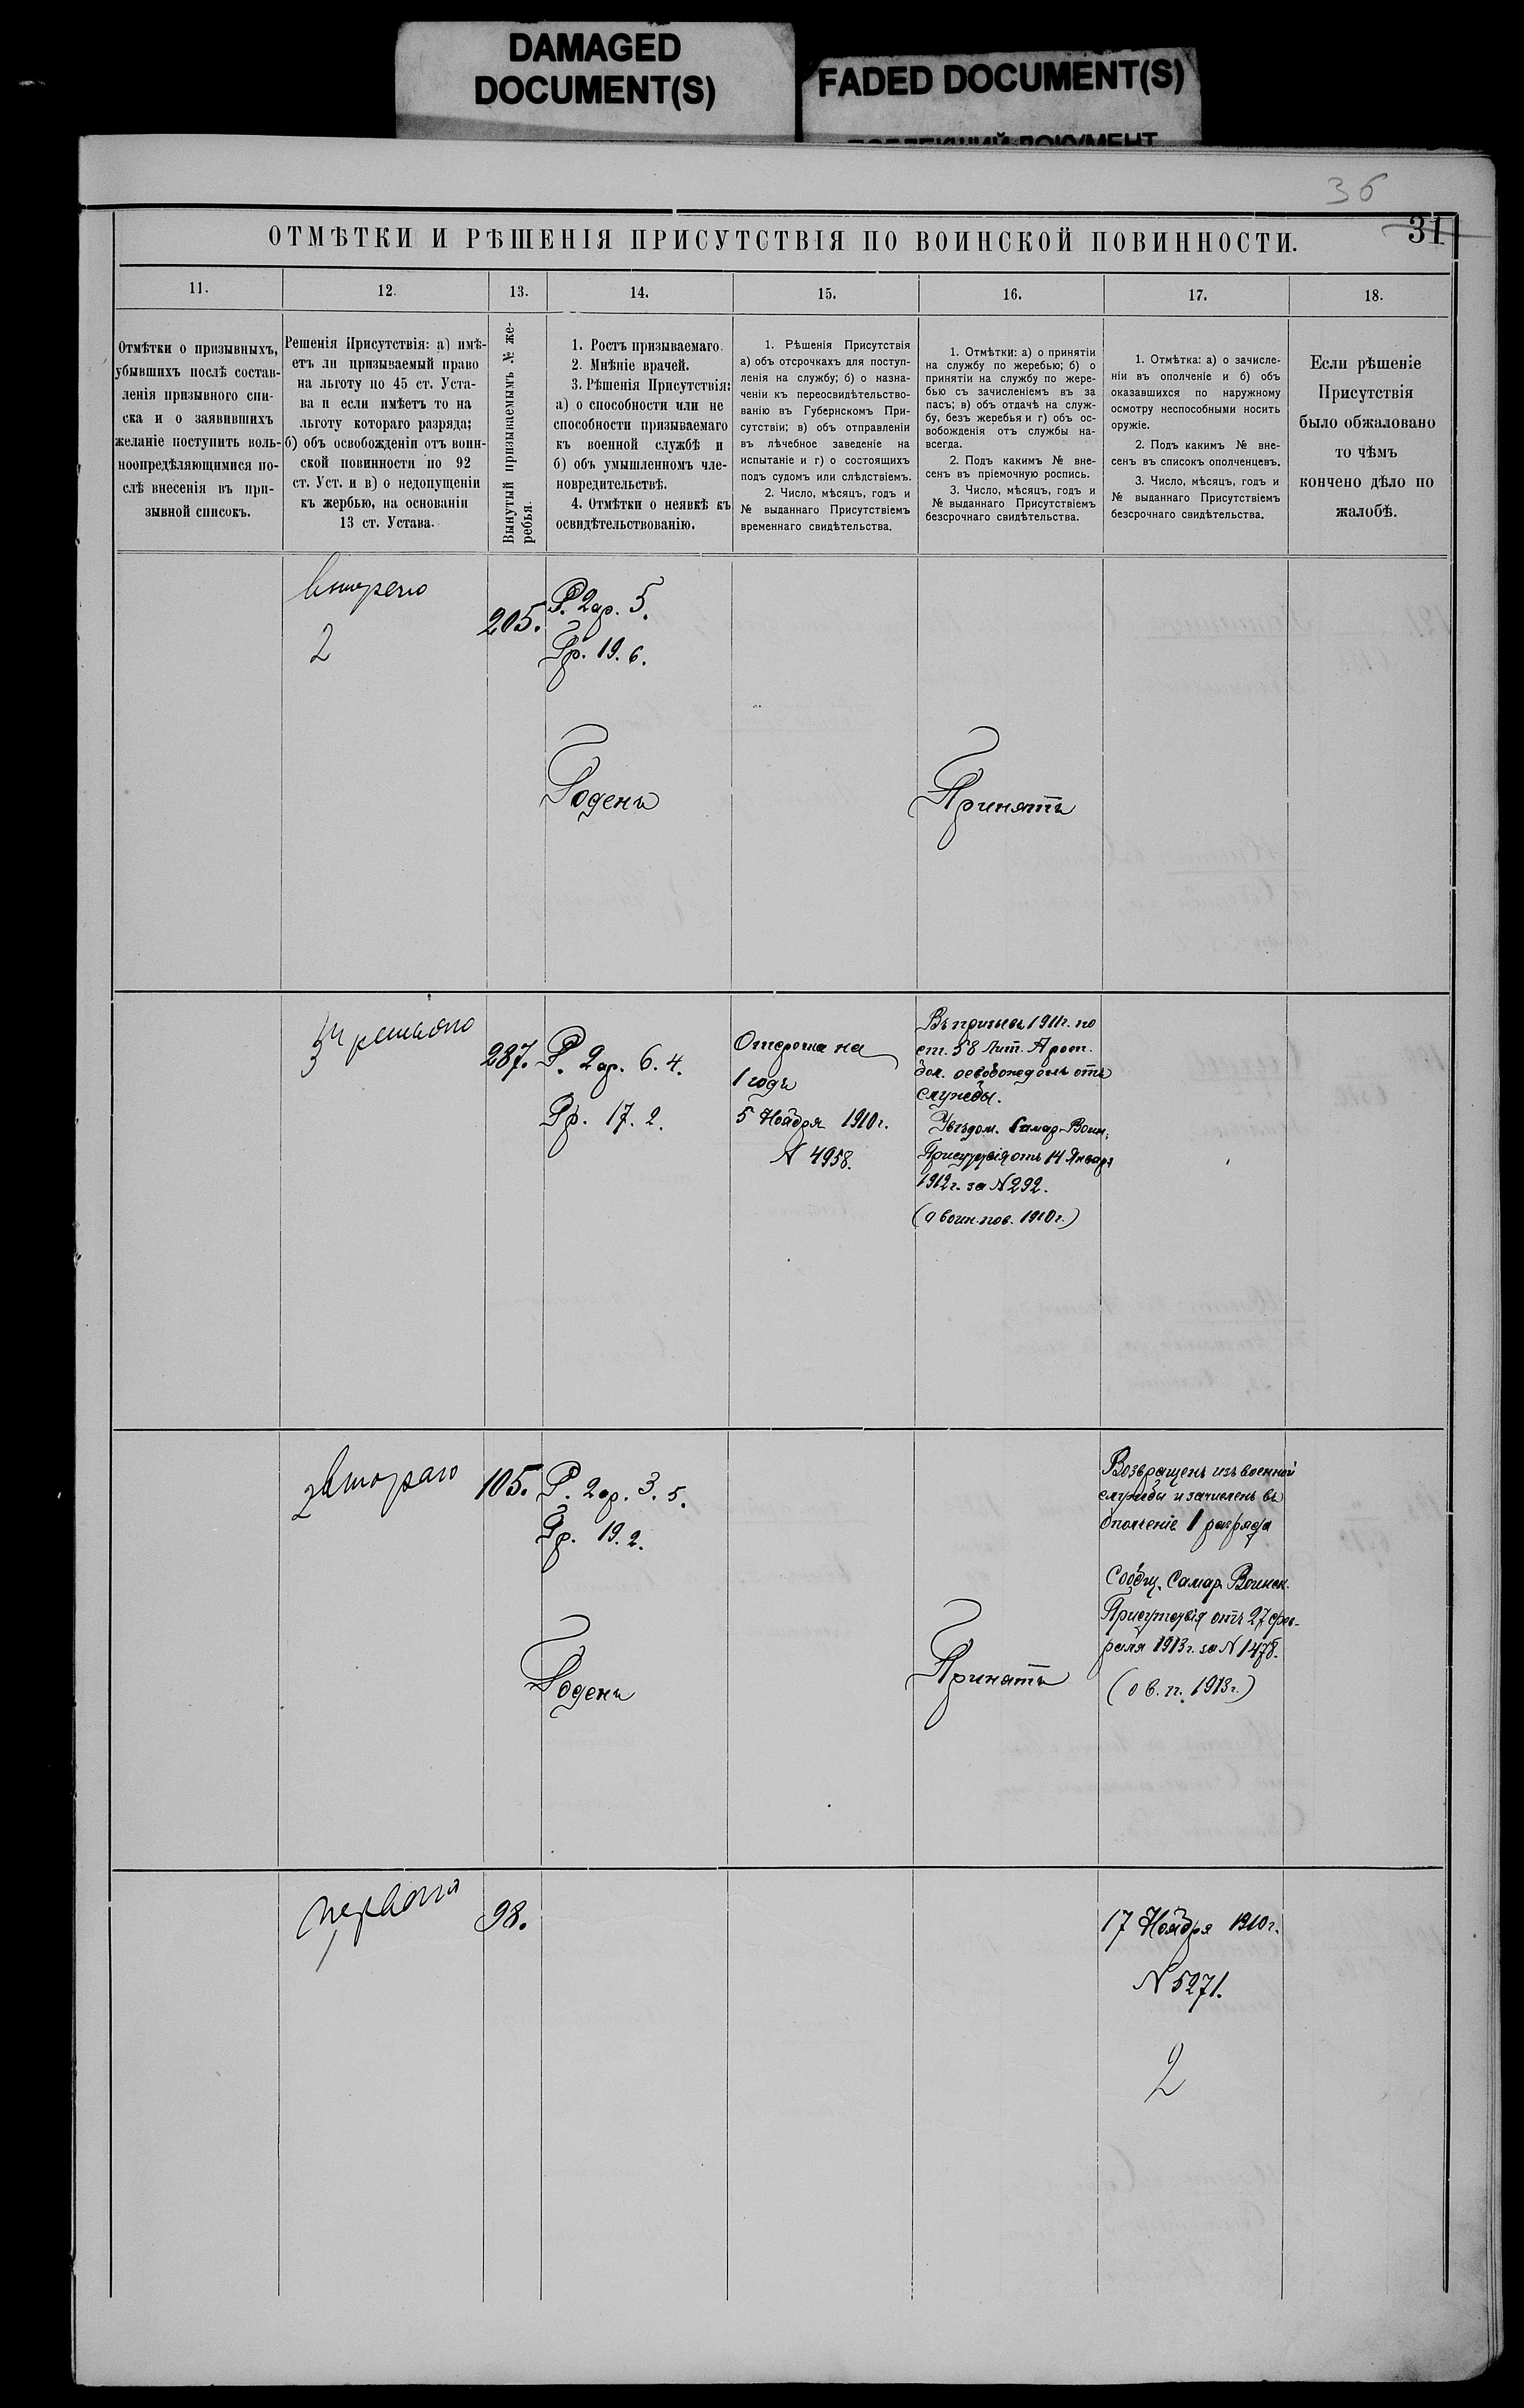 DAMAGED
DOCUMENT(S)
FADED DOCUMENT(S)
36
31
ОТМѢТКИ И РѢШЕНІЯ ПРИСУТСТВІЯ ПО ВОИНСКОЙ ПОВИННОСТИ.
11.
12.
13.
14.
15.
16.
17.
18.
Отмѣтки о призывныхъ,
убывшихъ послѣ состав-
ленія призывного спи-
ска и о заявившихъ
желаніе поступить воль-
ноопредѣляющимися по-
слѣ внесенія въ при-
зывной списокъ.
Решенія Присутствія: а) имѣ-
етъ ли призываемый право
на льготу по 45 ст. Уста-
ва и если имѣетъ то на
льготу котораго разряда;
б) объ освобожденіи отъ воин-
ской повинности по 92
ст. Уст. и в) о недопущеніи
къ жербью, на основаніи
13 ст. Устава.
Вынутый призываемымъ № же-
ребья.
1. Ростъ призываемаго.
2. Мнѣніе врачей.
3. Рѣшенія Присутствія:
а) о способности или не
способности призываемаго
къ военной службѣ и
б) объ умышленномъ чле-
новредительствѣ.
4. Отмѣтки о неявкѣ къ
освидѣтельствованію.
1. Рѣшенія Присутствія
а) объ отсрочкахъ для поступ-
ленія на службу; б) о назна-
ченіи къ переосвидѣтельство-
ванію въ Губернскомъ При-
сутствіи; в) объ отправленіи
въ лѣчебное заведеніе на
испытаніе и г) о состоящихъ
подъ судомъ или слѣдствіемъ.
2. Число, мѣсяцъ, годъ и
№ выданнаго Присутствіемъ
временнаго свидѣтельства.
1. Отмѣтки: а) о принятіи
на службу по жеребью; б) о
принятіи на службу по жере-
бью съ зачисленіемъ въ за
пасъ; в) объ отдачѣ на служ-
бу, безъ жеребья и г) объ ос-
вобожденія отъ службы на-
всегда.
2. Подъ какимъ № вне-
сенъ въ пріемочную роспись.
3. Число, мѣсяцъ, годъ и
№ выданнаго Присутствіемъ
безсрочнаго свидѣтельства.
1. Отмѣтка: а) о зачисле-
ніи въ ополченіе и б) объ
оказавшихся по наружному
осмотру неспособными носить
оружіе.
2. Подъ какимъ № вне-
сенъ въ списокъ ополченцевъ.
3. Число, мѣсяцъ, годъ и
№ выданнаго Присутствіемъ
безсрочнаго свидѣтельства.
Если рѣшеніе
Присутствія
было обжаловано
то чѣмъ
кончено дѣло по
жалобѣ.
второго
2
205.
Р. 2 ар. 5.
Гр. 19. 6.
Годенъ
Принятъ
287.
Р. 2 ар. 6. 4.
Гр. 17. 2.
Отсрочка на
1 годъ
5 Ноября 1910 г.
N 4958.
Въ призывъ 1911 г. по
ст. 58 Лит. А рост.
освобожденъ отъ
службы.
Увѣдом. Самар. Воин.
Присутствія отъ 14 Января
1912 г. за N 292.
(о воин. пов. 1910 г.)
второго
105.
Р. 2 ар. 3. 5.
Гр. 19. 2.
Годенъ
Принятъ
Возвращенъ изъ военной
службы и зачисленъ въ
ополченіе 1 разряда
Сообщ. Самар. Воинск.
Присутствія отъ 27 фев-
раля 1913 г. за N 1478.
(о в. п. 1913 г.)
перваго
98.
17 Ноября 1910 г.
N 5271.
2